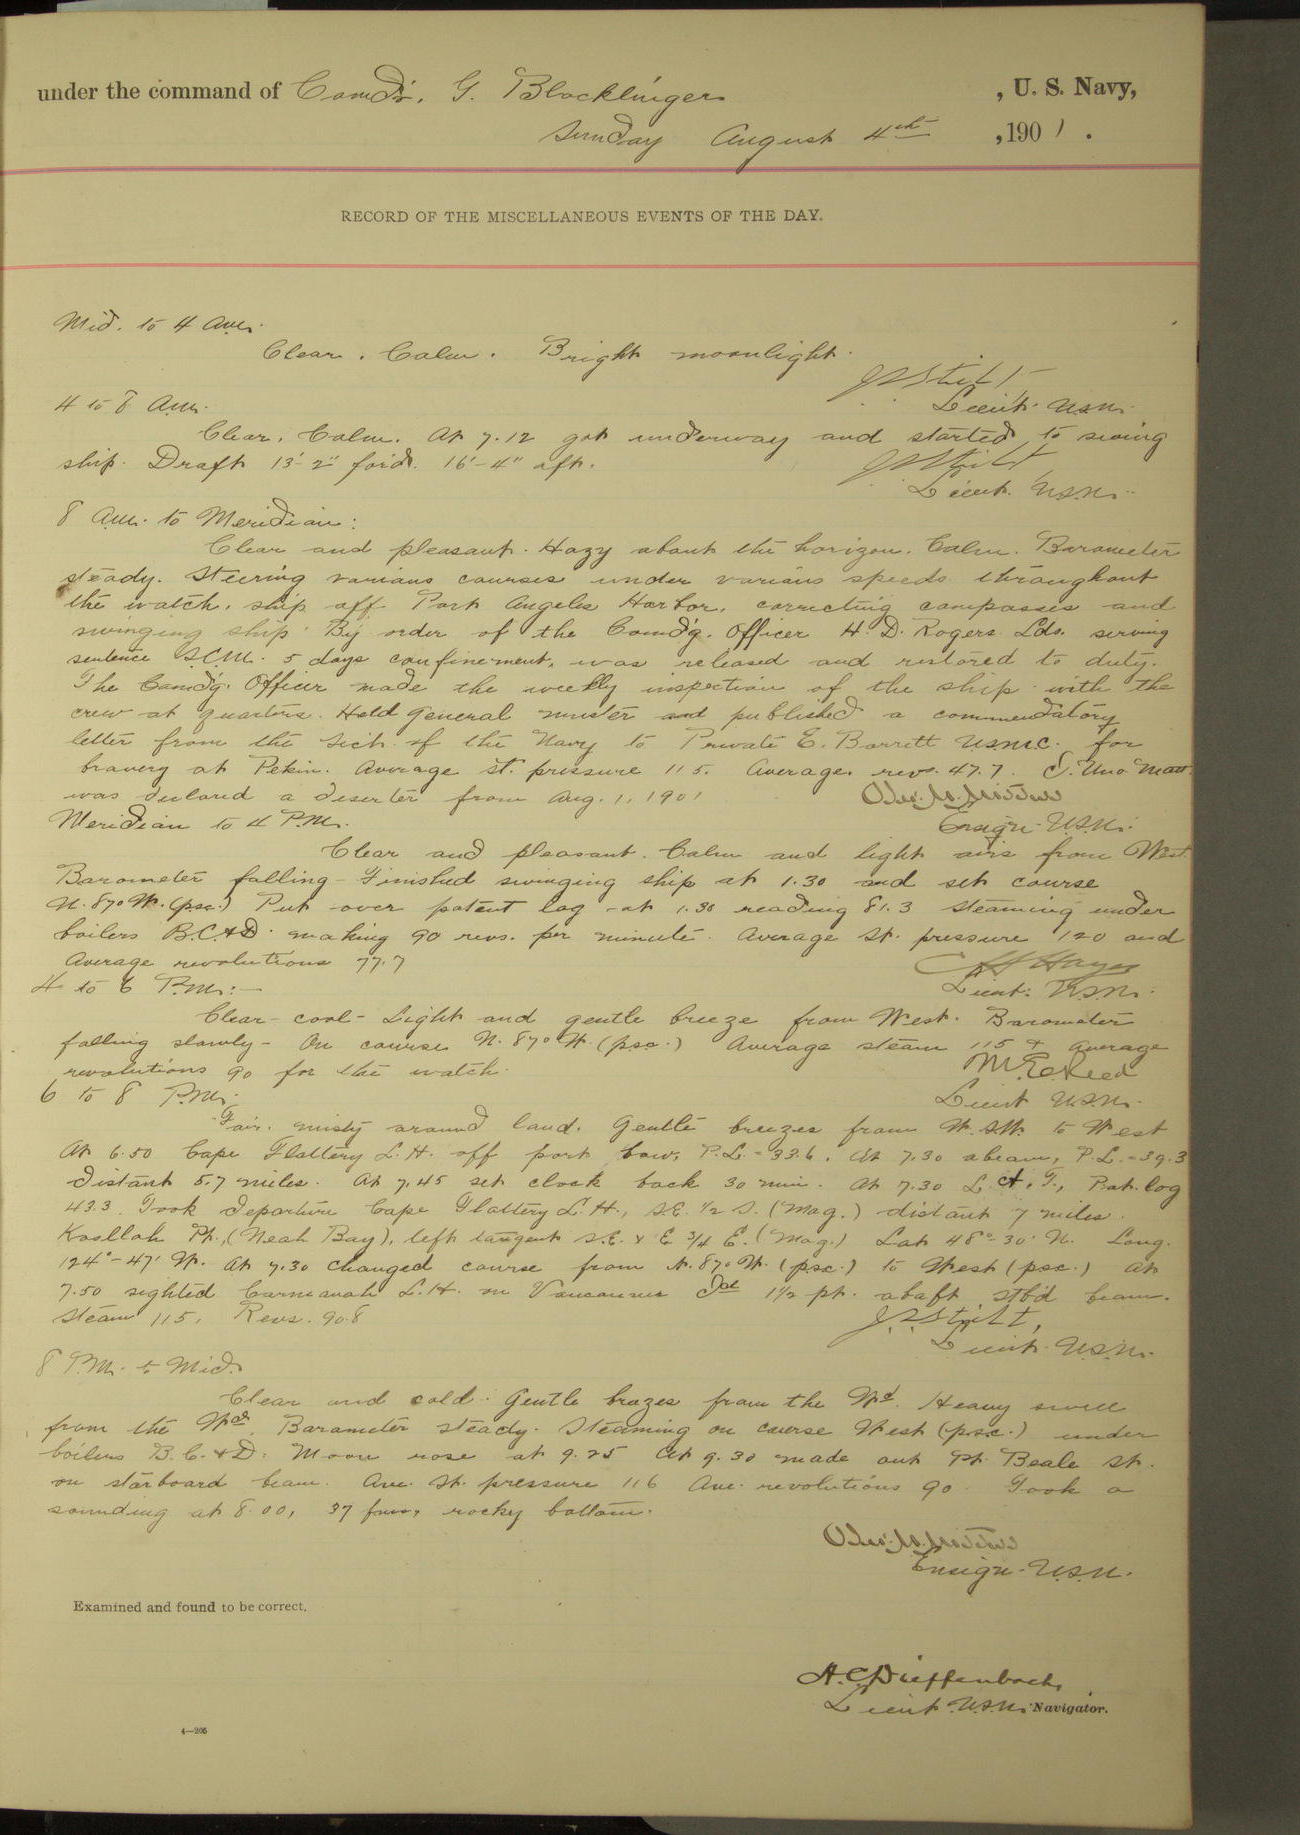 under the command of Comd'r. G. Blocklinger , U. S. Navy,
Sunday August 4th , 1901 .
RECORD OF THE MISCELLANEOUS EVENTS OF THE DAY.
Mid. to 4 a.m.
Clear. Calm. Bright moonlight.
Lieut. U.S.N.
4 to 8 a.m.
Clear. Calm. At 7.12 got underway and started to swing
ship. Draft 13'-2" for'd. 16'-4" aft.
Lieut. U.S.N.
8 a.m. to Meridian:
Clear and pleasant. Hazy about the horizon. Calm. Barometer
steady. Steering various courses under various speeds throughout
the watch, ship off Port Angeles Harbor, correcting compasses and
swinging ship. By order of the Comd'g. Officer H. D. Rogers Lds. serving
sentence S.C.M. 5 days confinement, was released and restored to duty.
The Comd'g. Officer made the weekly inspection of the ship with the
crew at quarters. Held general muster and published a commendatory
letter from the Sec't. of the Navy to Private E. Barrett U.S.M.C. for
bravery at Pekin. Average st. pressure 115. Average revs. 47.7.
was declared a deserter from Aug. 1, 1901
Ensign U.S.N.
Meridian to 4 P.M.
Clear and pleasant. Calm and light airs from West.
Barometer falling - Finished swinging ship at 1.30 and set course
N. 87° W. (p.s.c.) Put over patent log at 1.30 reading 81.3 steaming under
boilers B.C.&D. making 90 revs. per minute. Average st. pressure 120 and
Average revolutions 77.7
Lieut. U.S.N.
4 to 6 P.M:-
Clear - cool - Light and gentle breeze from West. Barometer
falling slowly - On course N. 87° W. (p.s.c.) Average steam 115 & average
revolutions 90 for the watch.
Lieut U.S.N.
6 to 8 P.M.
Fair. misty around land. Gentle breezes from W.S.W. to West
At 6.50 Cape Flattery L.H. off port bow, P.L. = 33.6. At 7.30 abeam, P.L. = 39.3
distant 5.7 miles. At 7.45 set clock back 30 min. At 7.30 L.A.T., Pat. log
43.3. Took departure Cape Flattery L.H., S.E. 1/2 S. (Mag.) distant 7 miles.
Koitlah Pt. (Neah Bay), left tangent S.E. x E 3/4 E. (Mag.) Lat 48°-30' N. Long.
124°-47' W. At 7.30 changed course from N. 87° W. (p.s.c.) to West (p.s.c.) At
7.50 sighted Carmanah L.H. on Vancouver Isl 1 1/2 pt. abaft stb'd beam.
Steam 115, Revs. 90.8
Lieut. U.S.N.
8 P.M. to Mid.
Clear and cold. Gentle breezes from the W'd. Heavy swell
from the W'd. Barometer steady. Steaming on course West (p.s.c.) under
boilers B.C.&D. Moon rose at 9.25 At 9.30 made out Pt. Beale Lt.
on starboard beam. Ave. St. pressure 116 Ave. revolutions 90. Took a
sounding at 8.00, 37 fms, rocky bottom.
Ensign U.S.N.
Examined and found to be correct.
H. C. Dieffenbach,
Lieut U.S.N. Navigator.
4—205